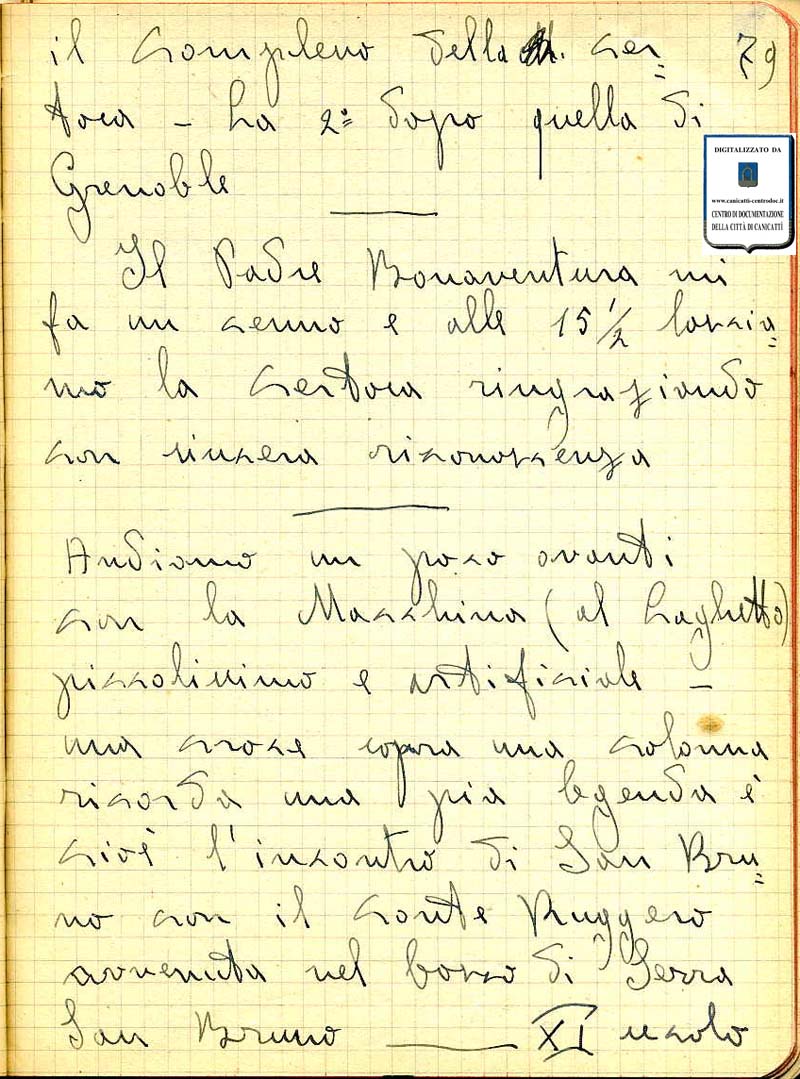 il complesso della cer= 79
tosa - La 2ª dopo quella di
Grenoble
Il Padre Bonaventura mi
fa un cenno e alle 15 1/2 lascia=
mo la certosa ringraziando
con sincera riconoscenza
Andiamo un poco avanti
con la Macchina (al Laghetto)
piccolissimo e artificiale -
una croce sopra una colonna
ricorda una pia legenda e
cioè l'incontro di San Bru=
no con il conte Ruggero
avvenuta nel bosco di Serra
San Bruno — XI secolo
DIGITALIZZATO DA
www.canicatti-centrodoc.it
CENTRO DI DOCUMENTAZIONE
DELLA CITTÀ DI CANICATTÌ